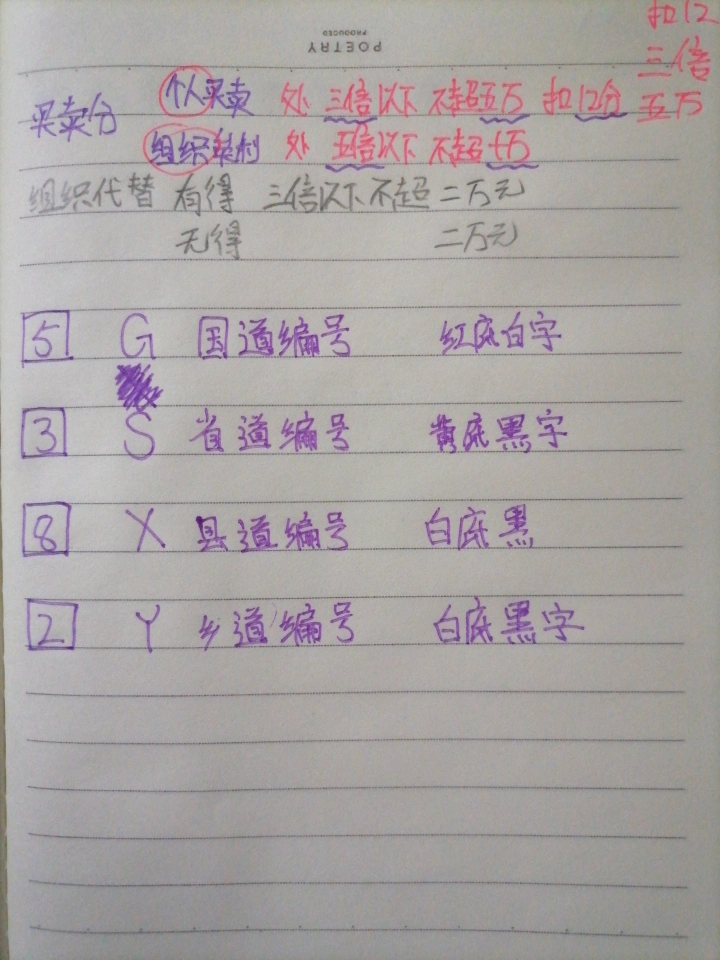 扣12
POETRY
PRODUCED
三倍
买卖分 个人买卖 处 三倍以下 不超五万 扣12分 五万
组织牟利 处 五倍以下 不超十万
组织代替 有得 三倍以下不超二万元
无得 二万元
5 G 国道编号 红底白字
3 S 省道编号 黄底黑字
8 X 县道编号 白底黑
2 Y 乡道编号 白底黑字